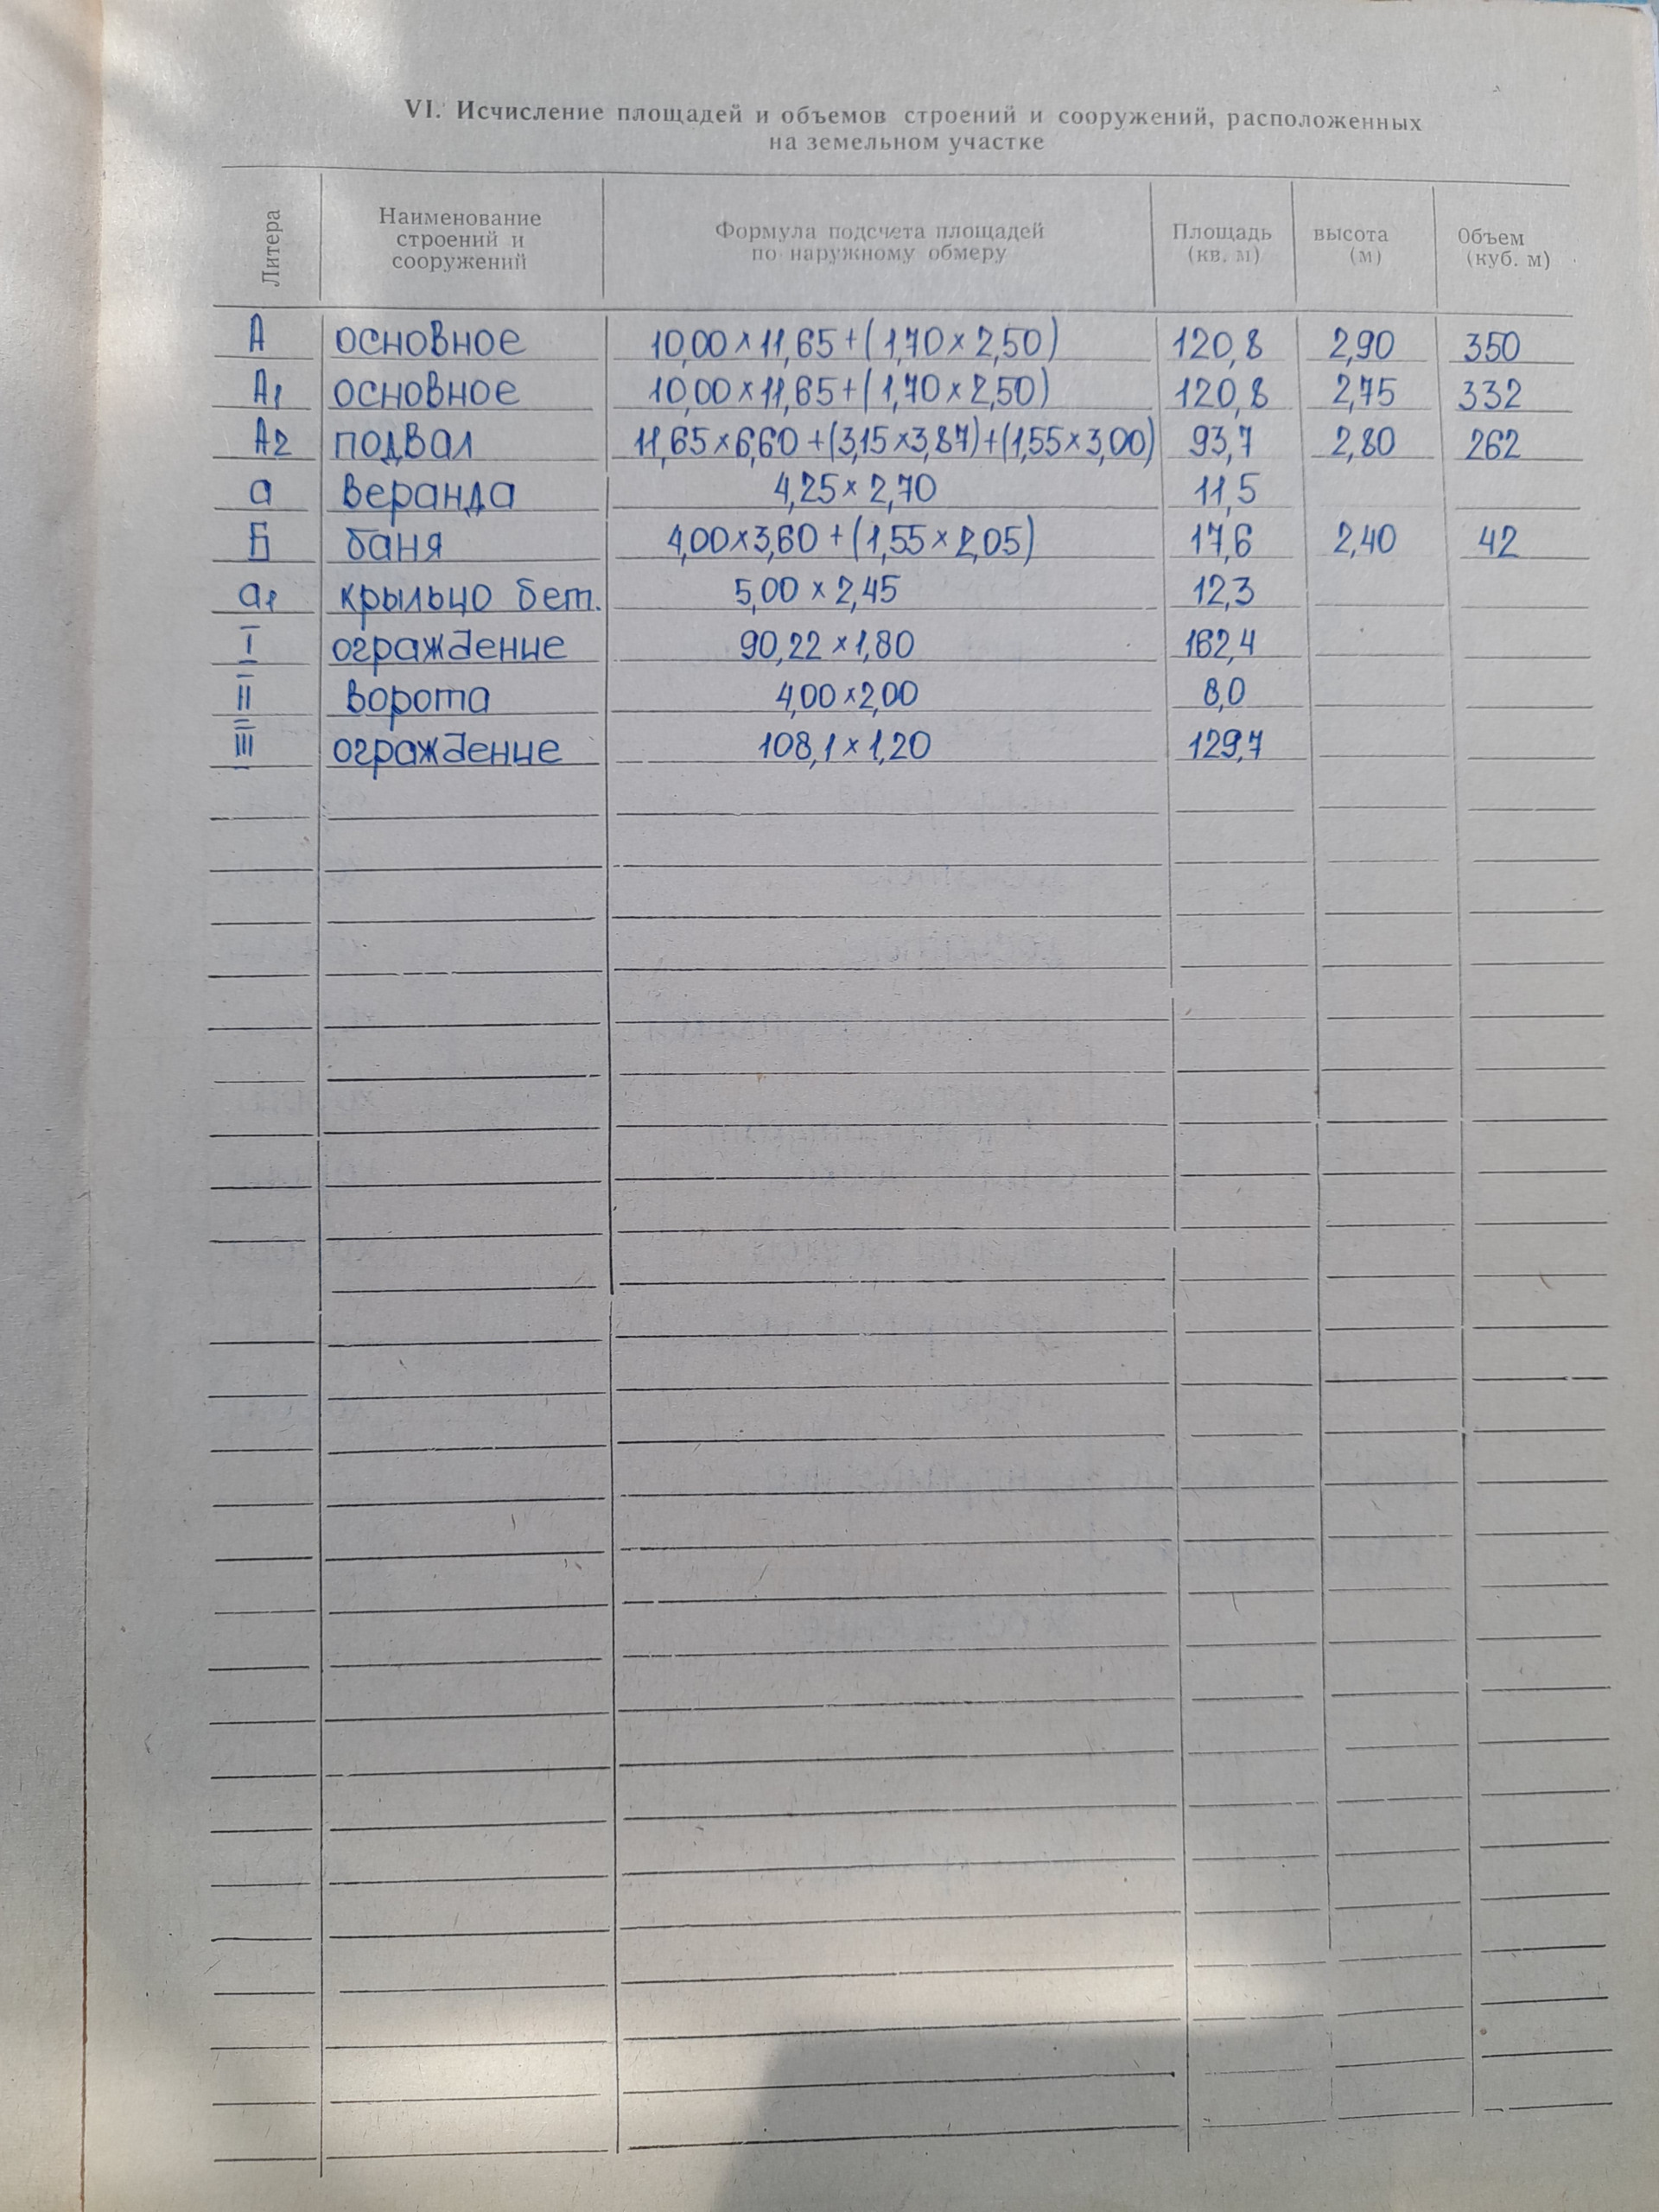 VI. Исчисление площадей и объемов строений и сооружений, расположенных
на земельном участке
Литера
Наименование
строений и
сооружений
Формула подсчета площадей
по наружному обмеру
Площадь
(кв. м)
высота
(м)
Объем
(куб. м)
А основное 10,00×11,65+(1,70×2,50) 120,8 2,90 350
А1 основное 10,00×11,65+(1,70×2,50) 120,8 2,75 332
А2 подвал 11,65×6,60+(3,15×3,87)+(1,55×3,00) 93,7 2,80 262
а веранда 4,25×2,70 11,5
Б баня 4,00×3,60+(1,55×2,05) 17,6 2,40 42
а1 крыльцо бет. 5,00×2,45 12,3
I ограждение 90,22×1,80 162,4
II ворота 4,00×2,00 8,0
III ограждение 108,1×1,20 129,7